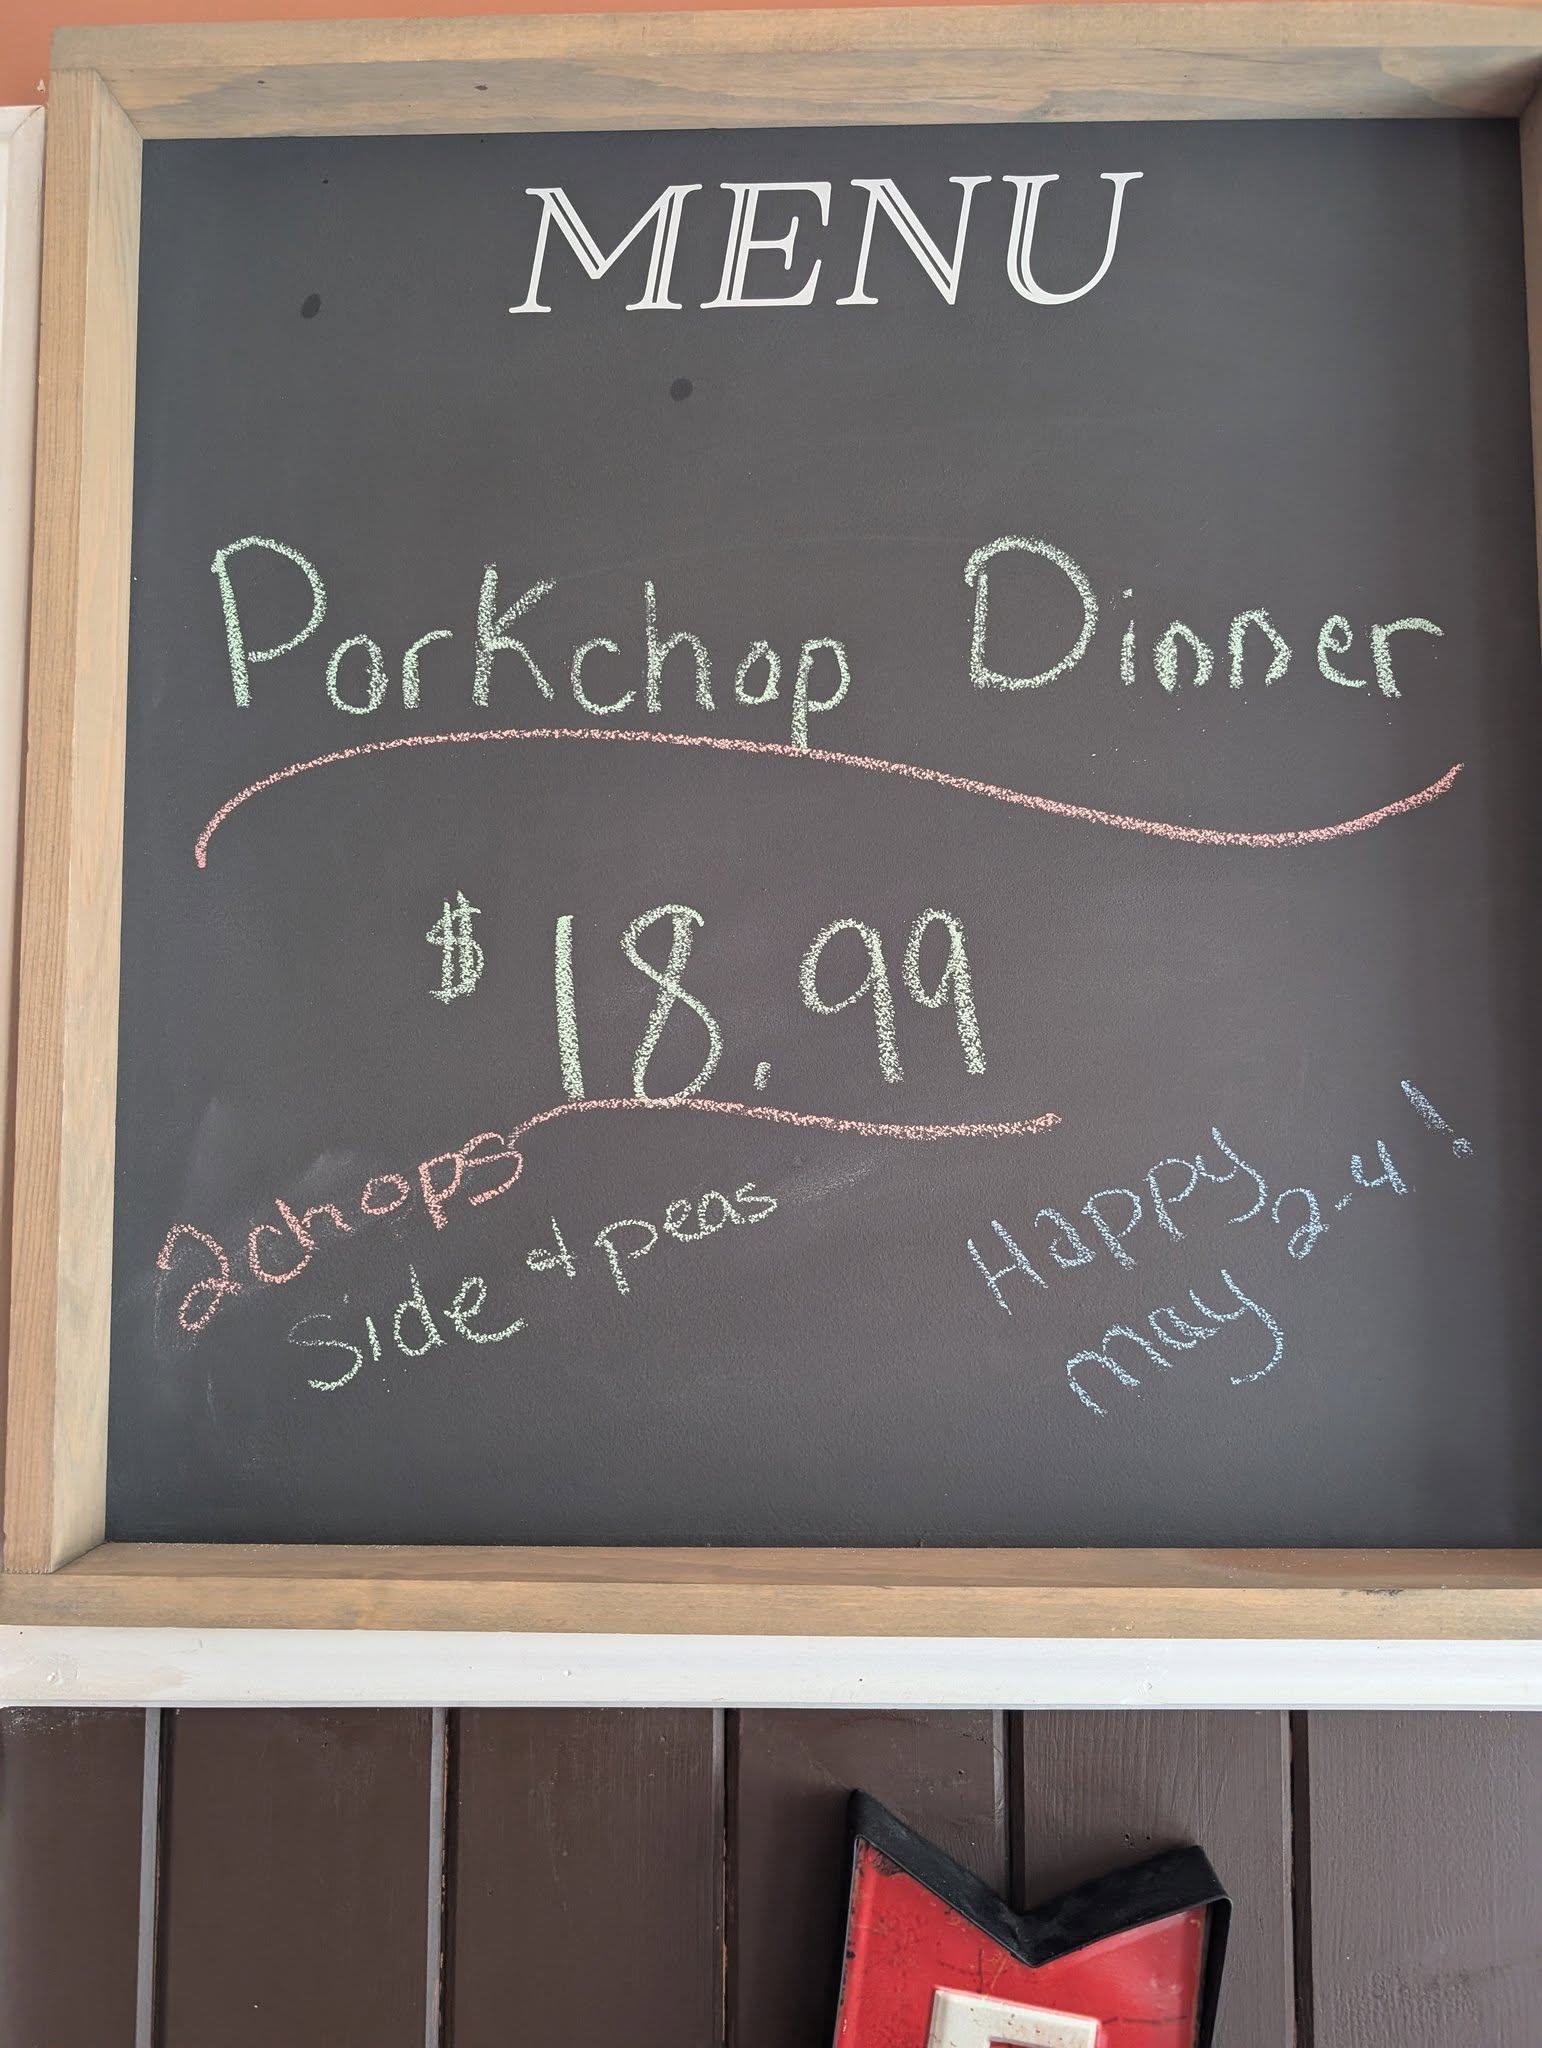 MENU
Porkchop Dinner
$18.99
2 chops
Side & peas
Happy
May 2-4!